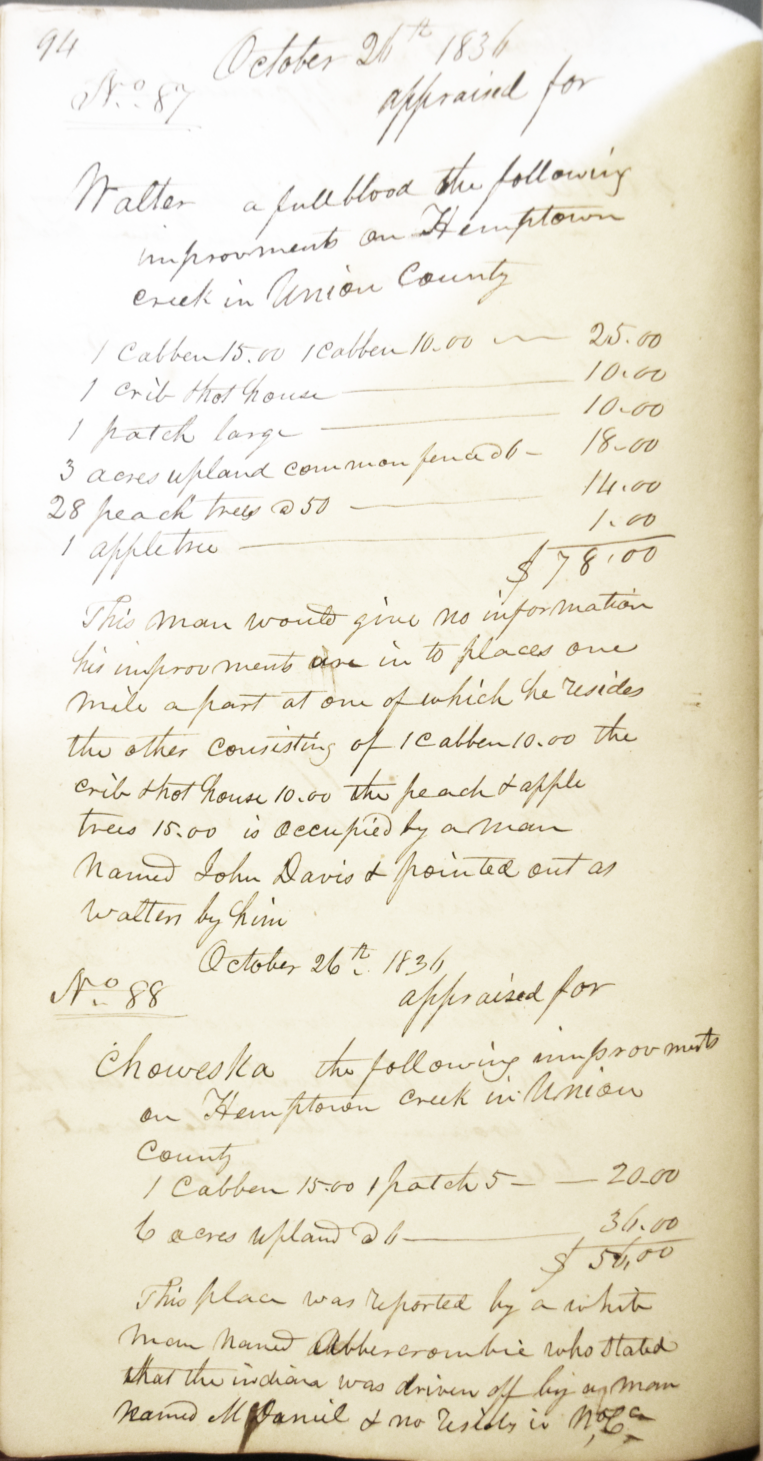 94
October 26th 1836
No. 87
appraised for
Walter a fullblood the following
improvments on Hemptown
creek in Union County
1 Cabben 15.00 1 cabben 10.00 — 25.00
1 crib & hot house — 10.00
1 patch large — 10.00
3 acres upland common fence @ 6 — 18.00
28 peach trees @ 50 — 14.00
1 appletree — 1.00
$78.00
This man would give no information
his improvments are in to places one
mile a part at one of which he resides
the other consisting of 1 Cabben 10.00 the
crib & hot house 10.00 the peach & apple
trees 15.00 is occupied by a man
named John Davis & pointed out as
walters by him
October 26th 1836
No. 88
appraised for
Choweska the following improvments
on Hemptown creek in Union
County
1 Cabben 15.00 1 patch 5 — — 20.00
6 acres upland @ 6 — 36.00
$56,00
This place was reported by a white
man named Abbercrombie who stated
that the indian was driven off by a man
named McDaniel & no resides in No. Ca